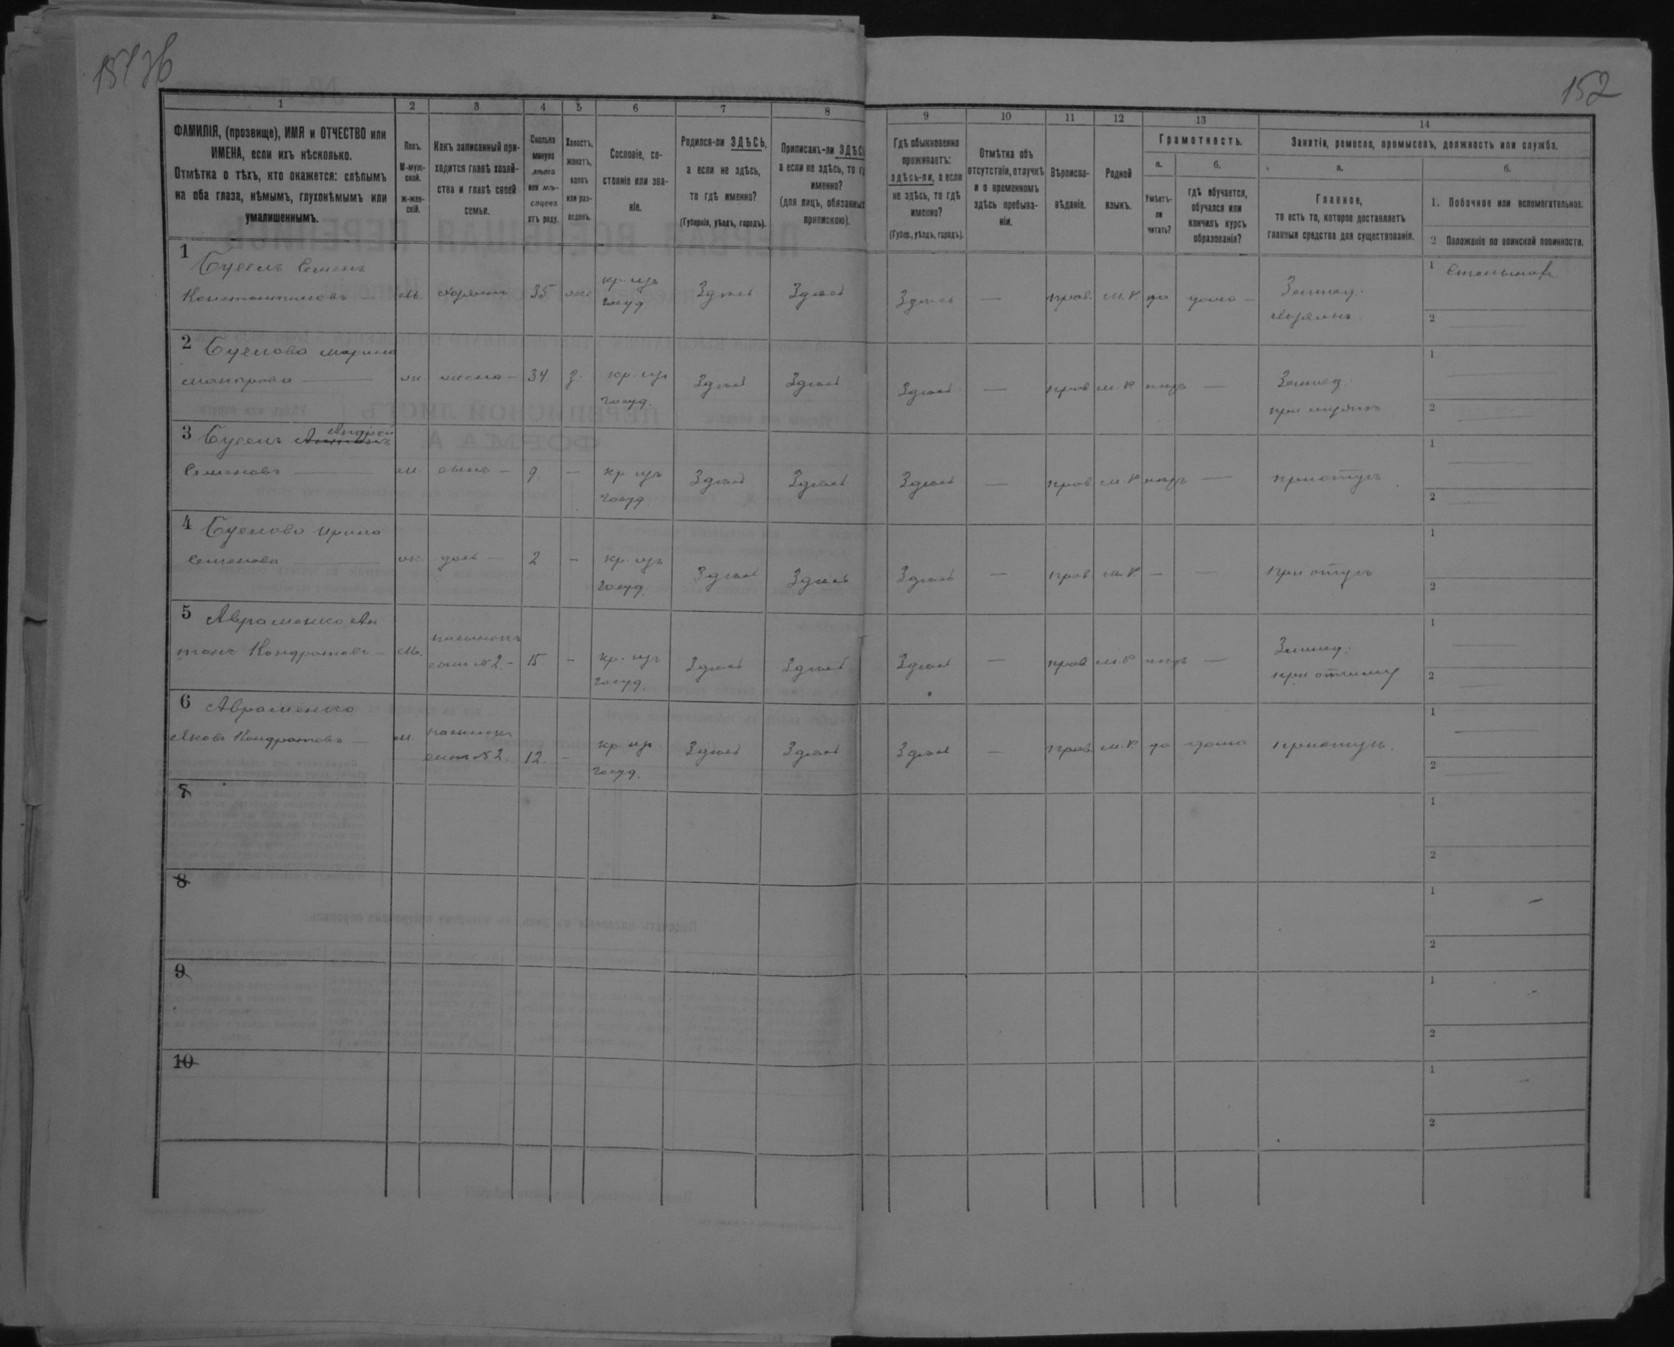 152
1
2
3
4
5
6
7
8
9
10
11
12
13
14
ФАМИЛІЯ, (прозвище), ИМЯ и ОТЧЕСТВО или
ИМЕНА, если ихъ нѣсколько.
Отмѣтка о тѣхъ, кто окажется: слѣпымъ
на оба глаза, нѣмымъ, глухонѣмымъ или
умалишеннымъ.
Полъ.
М-муж-
ской.
ж-жен-
скій.
Какъ записанный при-
ходится главѣ хозяй-
ства и главѣ своей
семьи.
Сколько
минуло
лѣтъ
или мѣ-
сяцевъ
отъ роду.
Холостъ,
женатъ,
вдовъ
или раз-
веденъ.
Сословіе, со-
стояніе или зва-
ніе.
Родился-ли ЗДѢСЬ,
а если не здѣсь,
то гдѣ именно?
(Губернія, уѣздъ, городъ).
Приписанъ-ли ЗДѢСЬ
а если не здѣсь, то
именно?
(для лицъ, обязанныхъ
припискою).
Гдѣ обыкновенно
проживаетъ:
здѣсь-ли, а если
не здѣсь, то гдѣ
именно?
(Губер., уѣздъ, городъ).
Отмѣтка объ
отсутствіи, отлучкѣ
и о временномъ
здѣсь пребыва-
ніи.
Вѣроиспо-
вѣданіе.
Родной
языкъ.
Грамотность.
а.
Умѣетъ-
ли
читать?
б.
гдѣ обучается,
обучался или
кончилъ курсъ
образованія?
Занятіе, ремесло, промыселъ, должность или служба.
а.
Главное,
то есть то, которое доставляетъ
главныя средства для существованія.
б.
1. Побочное или вспомогательное.
2 Положеніе по воинской повинности.
1
Семенъ
Константиновъ м. хозяинъ 35 жен. кр. изъ госуд. Здѣсь Здѣсь Здѣсь — прав. м.р. да дома — Землед. хозяинъ
1
2
2
Марина
ж. жена — 34 з. кр. изъ госуд. Здѣсь Здѣсь Здѣсь — прав. м.р. нѣтъ — Землед. при мужѣ
1
2
3
Андрей
Семеновъ — м. сынъ — 9 — кр. изъ госуд. Здѣсь Здѣсь Здѣсь — прав. м.р. нѣтъ — при отцѣ
1
2
4
Ирина
Семенова — ж. дочь — 2 — кр. изъ госуд. Здѣсь Здѣсь Здѣсь — прав. м.р. — — при отцѣ
1
2
5 Авраменко Ан
тонъ Кондратовъ — м. пасынокъ сынъ №2 — 15 — кр. изъ госуд. Здѣсь Здѣсь Здѣсь — прав. м.р. нѣтъ — Землед. при отчимѣ
1
2
6 Авраменко
Яковъ Кондратовъ — м. пасынокъ сынъ №2. 12. — кр. изъ госуд. Здѣсь Здѣсь Здѣсь — прав. м.р. да дома при отцѣ.
1
2
7
1
2
8
1
2
9
1
2
10
1
2